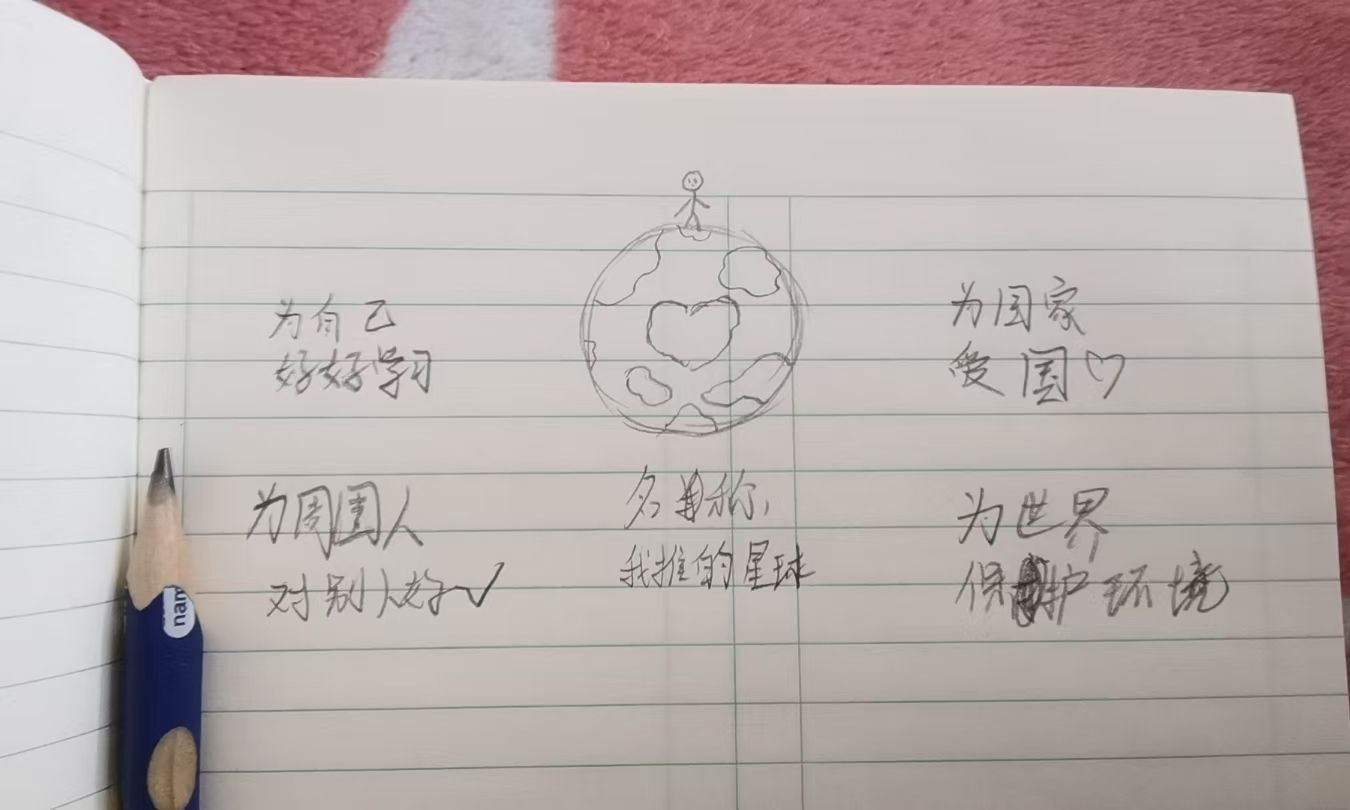 为自己
好好学习
为国家
爱国♡
为周围人
对别人好✓
名称:
我推的星球
为世界
保护环境
nam